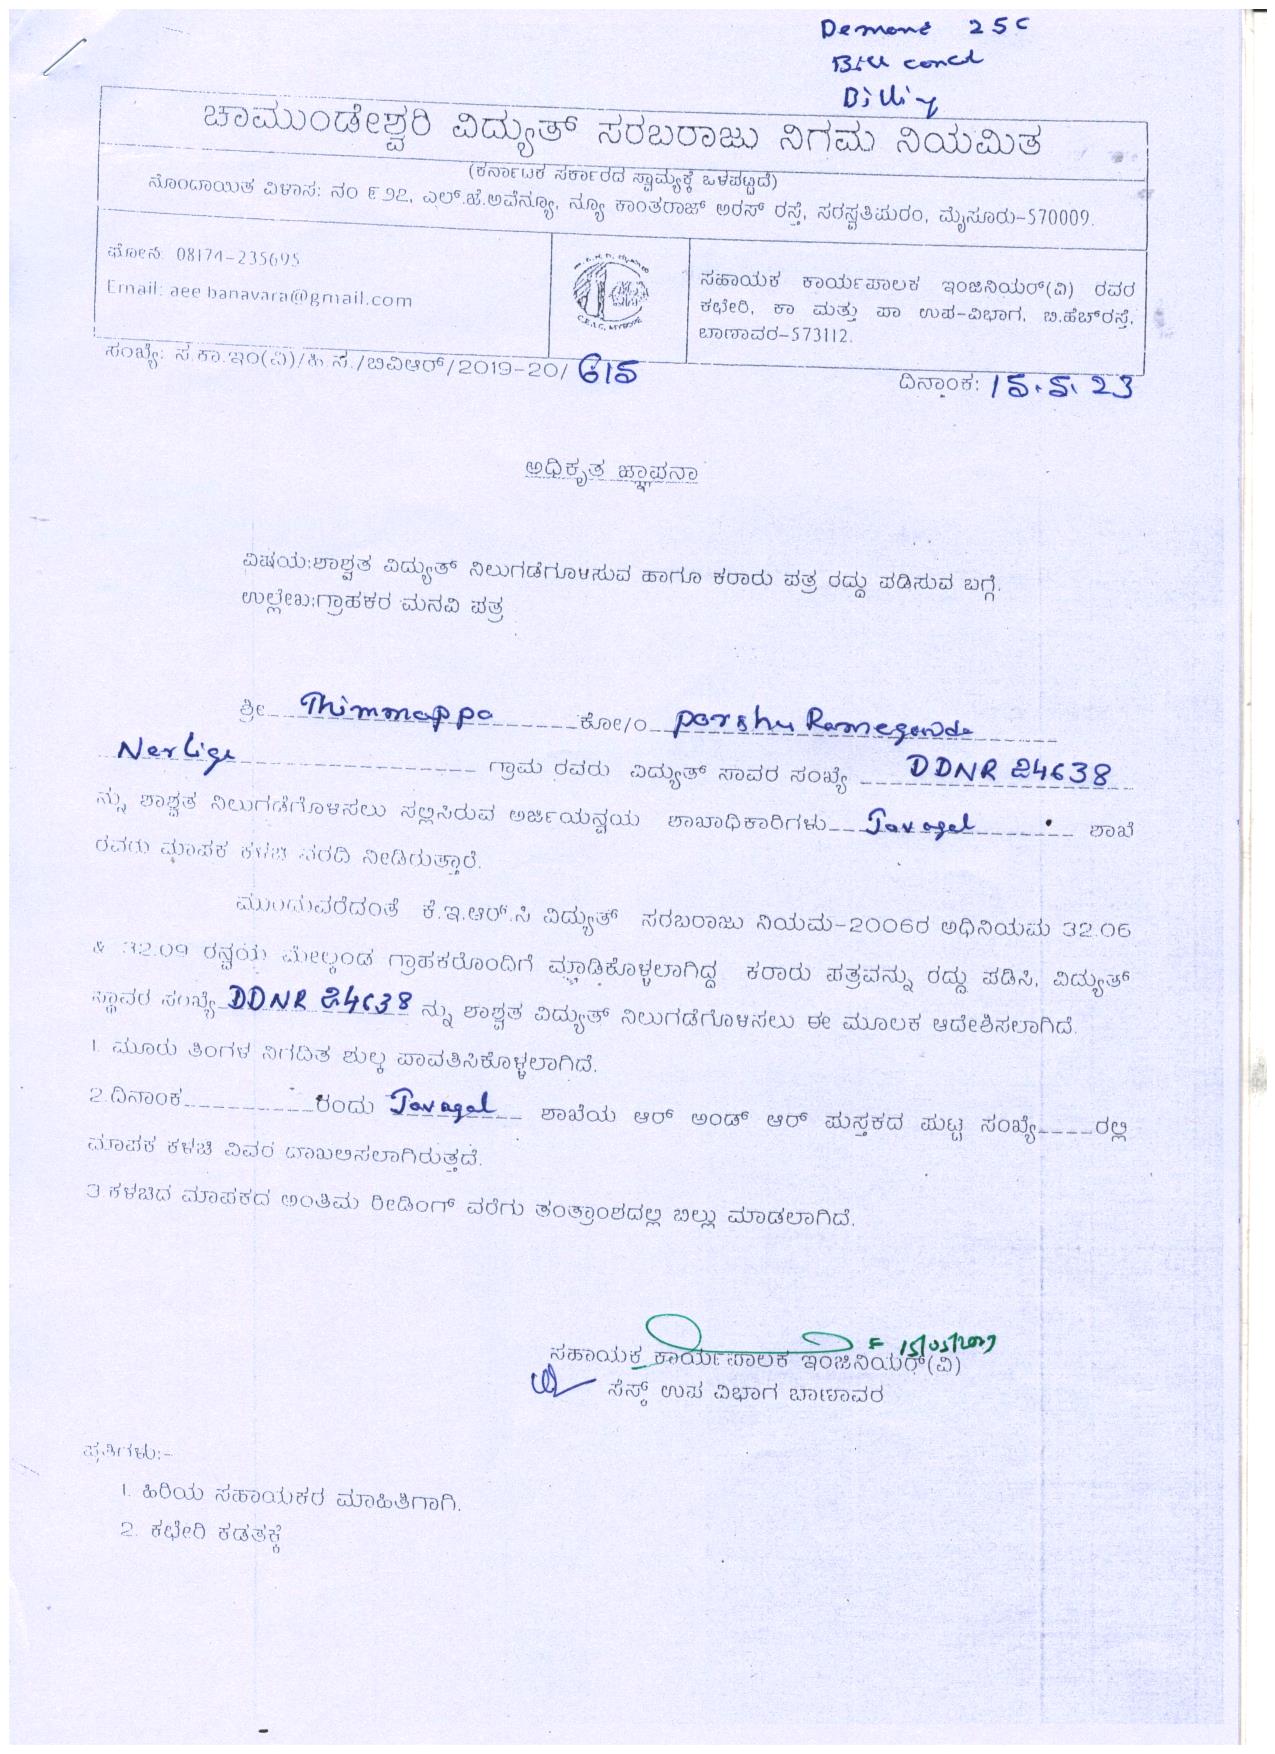 Demand 25C
Bill cancl
Billing
ಚಾಮುಂಡೇಶ್ವರಿ ವಿದ್ಯುತ್ ಸರಬರಾಜು ನಿಗಮ ನಿಯಮಿತ
(ಕರ್ನಾಟಕ ಸರ್ಕಾರದ ಸ್ವಾಮ್ಯಕ್ಕೆ ಒಳಪಟ್ಟಿದೆ)
ನೊಂದಾಯಿತ ವಿಳಾಸ: ನಂ ೯೨೭, ಎಲ್.ಜೆ.ಅವೆನ್ಯೂ, ನ್ಯೂ ಕಾಂತರಾಜ್ ಅರಸ್ ರಸ್ತೆ, ಸರಸ್ವತಿಪುರಂ, ಮೈಸೂರು-570009.
ಫೋನ: 08174-235695
Email: aee.banavara@gmail.com
ಸಹಾಯಕ ಕಾರ್ಯಪಾಲಕ ಇಂಜಿನಿಯರ್(ವಿ) ರವರ
ಕಛೇರಿ, ಕಾ ಮತ್ತು ಪಾ ಉಪ-ವಿಭಾಗ, ಬಿ.ಹೆಚ್‌ರಸ್ತೆ,
ಬಾಣಾವರ-573112.
ಸಂಖ್ಯೆ: ಸ.ಕಾ.ಇಂ(ವಿ)/ಹಿ.ಸ./ಬಿವಿಆರ್/2019-20/ 615
ದಿನಾಂಕ: 15.5.23
ಅಧಿಕೃತ ಜ್ಞಾಪನಾ
ವಿಷಯ:ಶಾಶ್ವತ ವಿದ್ಯುತ್ ನಿಲುಗಡೆಗೊಳಿಸುವ ಹಾಗೂ ಕರಾರು ಪತ್ರ ರದ್ದು ಪಡಿಸುವ ಬಗ್ಗೆ.
ಉಲ್ಲೇಖ:ಗ್ರಾಹಕರ ಮನವಿ ಪತ್ರ
ಶ್ರೀ Thimmappa ಕೋ/ಂ Parshu Ramegowda
Nerlige ಗ್ರಾಮ ರವರು ವಿದ್ಯುತ್ ಸಾವರ ಸಂಖ್ಯೆ DDNR 24638
ನ್ನು ಶಾಶ್ವತ ನಿಲುಗಡೆಗೊಳಿಸಲು ಸಲ್ಲಿಸಿರುವ ಅರ್ಜಿಯನ್ವಯ ಶಾಖಾಧಿಕಾರಿಗಳು Javagal ಶಾಖೆ
ರವರು ಮಾಪಕ ಕಳಚಿ ವರದಿ ನೀಡಿರುತ್ತಾರೆ.
ಮುಂದುವರೆದಂತೆ ಕೆ.ಇ.ಆರ್.ಸಿ ವಿದ್ಯುತ್ ಸರಬರಾಜು ನಿಯಮ-2006ರ ಅಧಿನಿಯಮ 32.06
& 32.09 ರನ್ವಯ ಮೇಲ್ಕಂಡ ಗ್ರಾಹಕರೊಂದಿಗೆ ಮ್ಮಾಡಿಕೊಳ್ಳಲಾಗಿದ್ದ ಕರಾರು ಪತ್ರವನ್ನು ರದ್ದು ಪಡಿಸಿ, ವಿದ್ಯುತ್
ಸ್ಥಾವರ ಸಂಖ್ಯೆ DDNR 24638 ನ್ನು ಶಾಶ್ವತ ವಿದ್ಯುತ್ ನಿಲುಗಡೆಗೊಳಿಸಲು ಈ ಮೂಲಕ ಆದೇಶಿಸಲಾಗಿದೆ.
1. ಮೂರು ತಿಂಗಳ ನಿಗದಿತ ಶುಲ್ಕ ಪಾವತಿಸಿಕೊಳ್ಳಲಾಗಿದೆ.
2.ದಿನಾಂಕ__________ರಂದು Javagal ಶಾಖೆಯ ಆರ್ ಅಂಡ್ ಆರ್ ಪುಸ್ತಕದ ಪುಟ್ಟ ಸಂಖ್ಯೆ____ರಲ್ಲಿ
ಮಾಪಕ ಕಳಚಿ ವಿವರ ದಾಖಲಿಸಲಾಗಿರುತ್ತದೆ.
3.ಕಳಚಿದ ಮಾಪಕದ ಅಂತಿಮ ರೀಡಿಂಗ್ ವರೆಗು ತಂತ್ರಾಂಶದಲ್ಲಿ ಬಿಲ್ಲು ಮಾಡಲಾಗಿದೆ.
ಸಹಾಯಕ ಕಾರ್ಯಪಾಲಕ ಇಂಜಿನಿಯರ್(ವಿ)
ಸೆಸ್ಕ್ ಉಪ ವಿಭಾಗ ಬಾಣಾವರ
ಪ್ರತಿಗಳು:-
1. ಹಿರಿಯ ಸಹಾಯಕರ ಮಾಹಿತಿಗಾಗಿ.
2. ಕಛೇರಿ ಕಡತಕ್ಕೆ